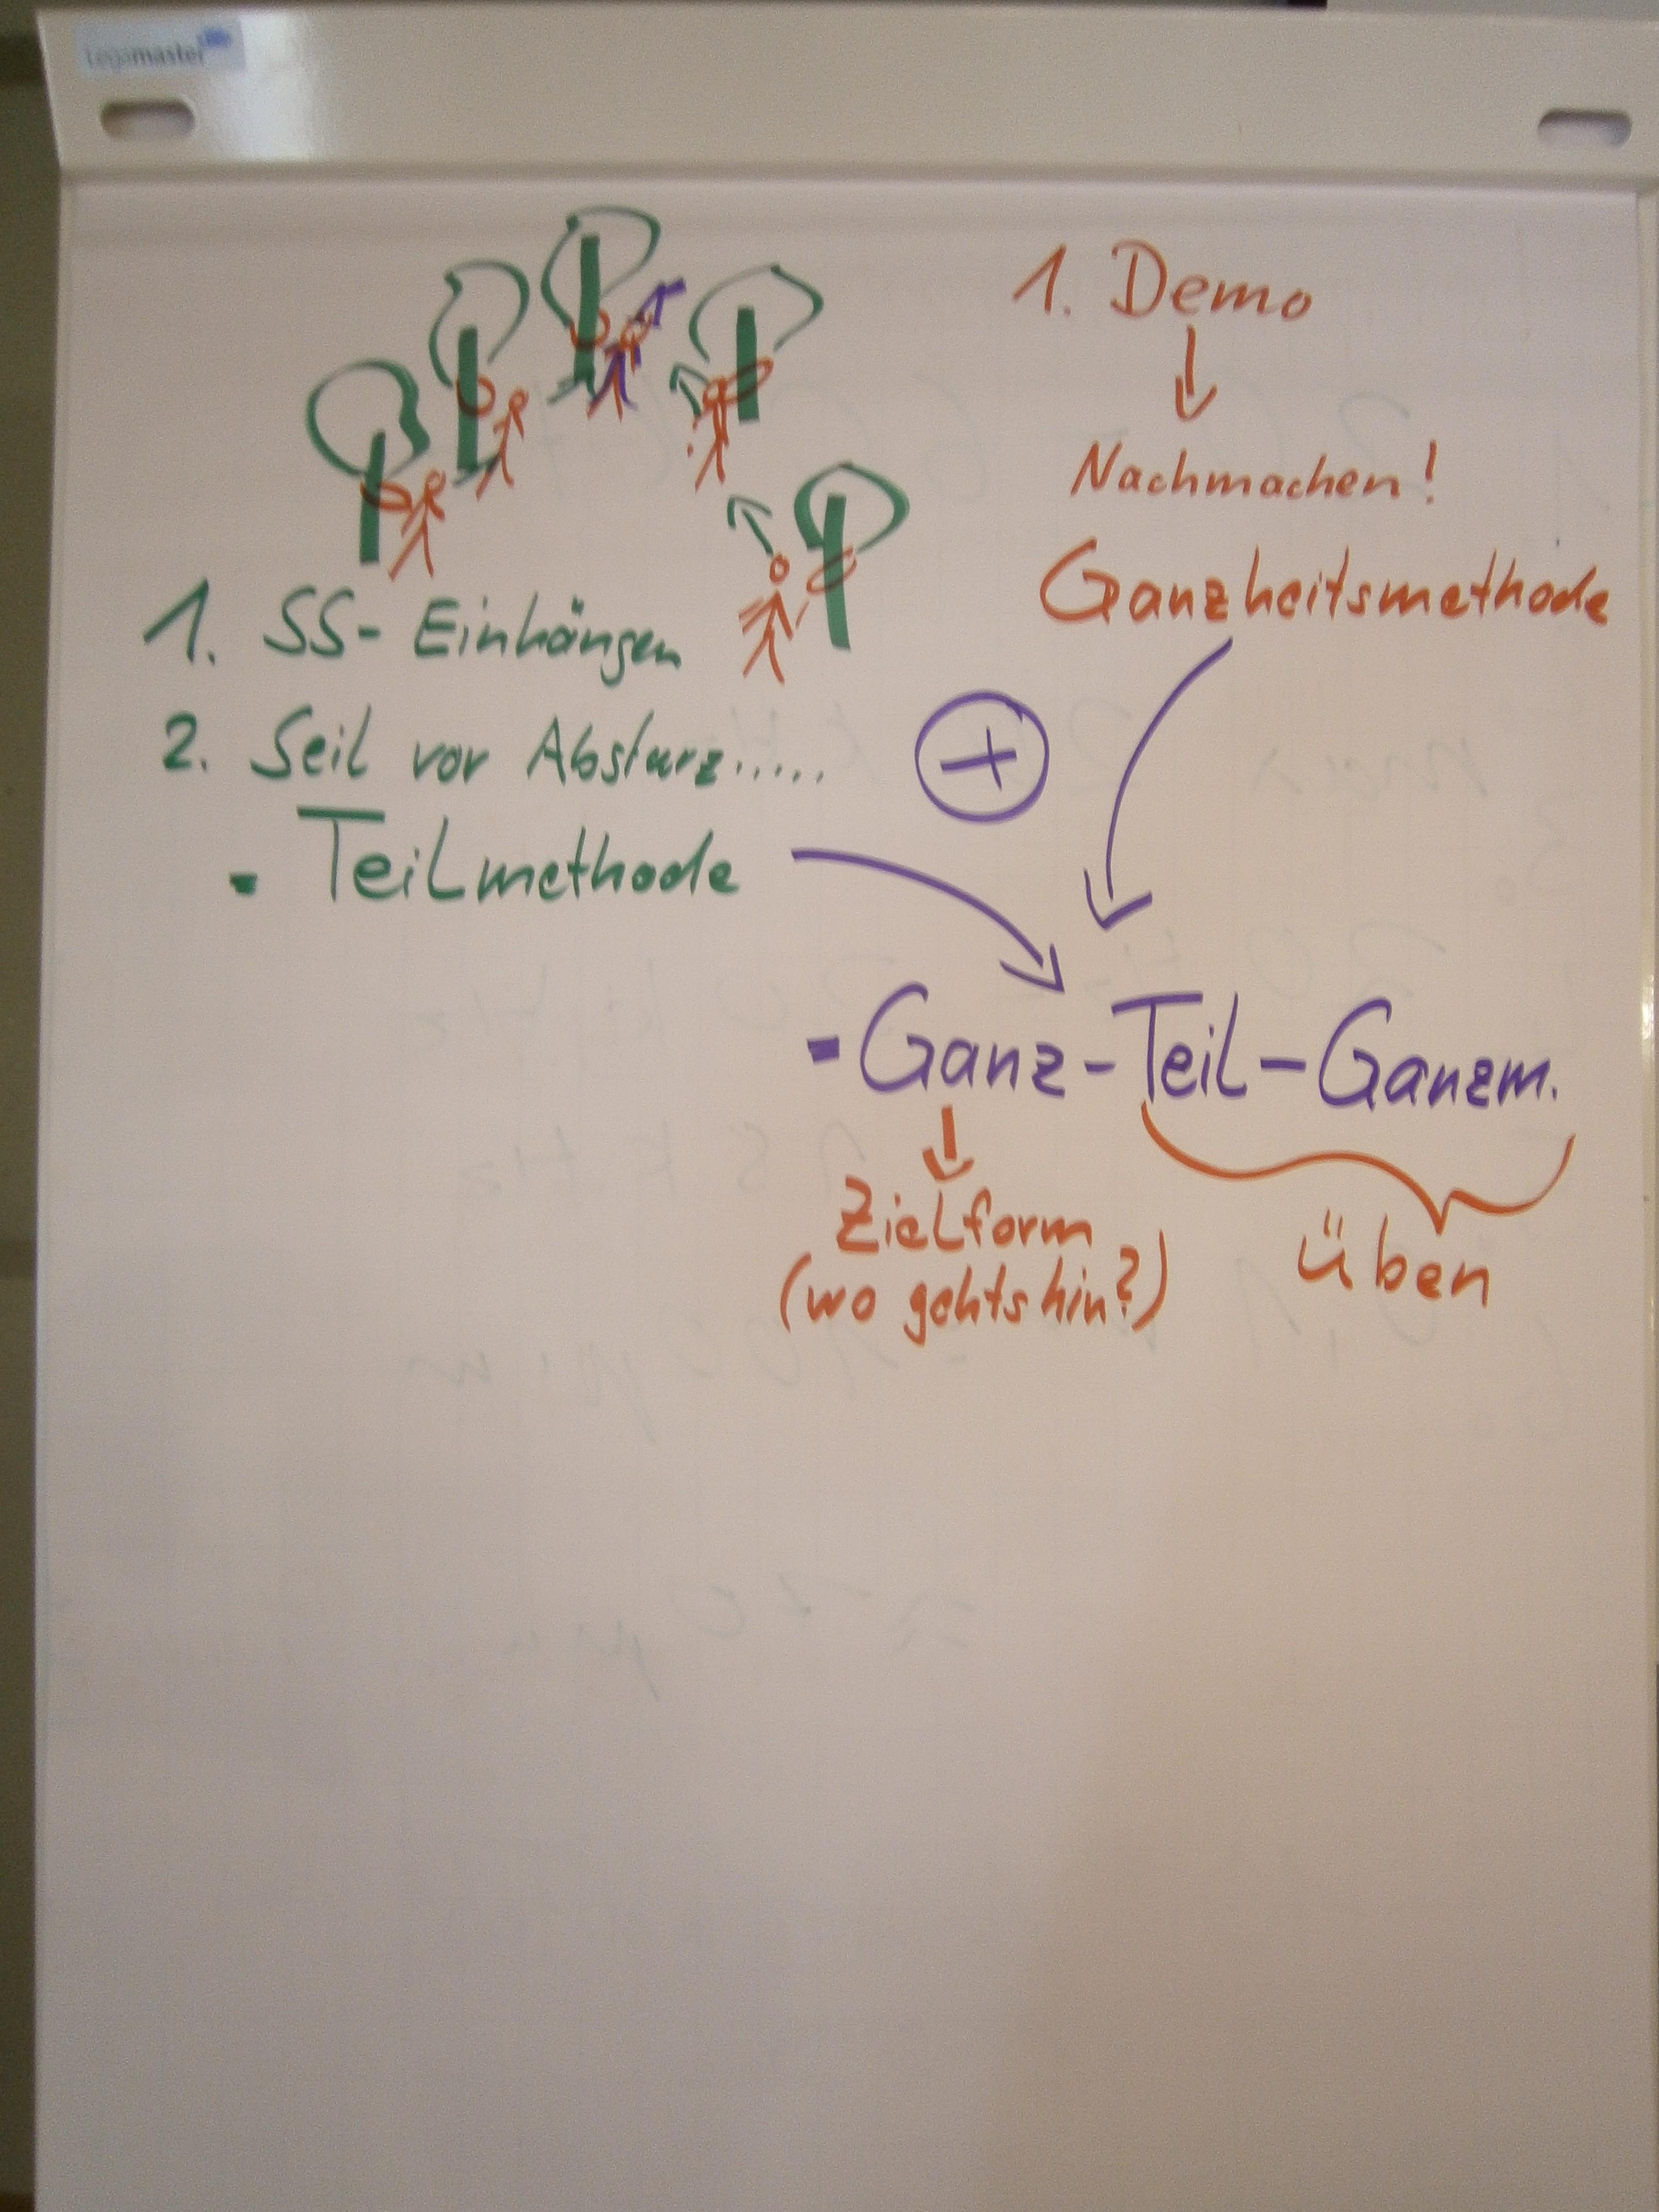 Legamaster
1. Demo
Nachmachen!
Ganzheitsmethode
1. SS-Einhängen
2. Seil vor Absturz.....
- Teilmethode
+
- Ganz-Teil-Ganzm.
Zielform
(wo gehts hin?)
üben